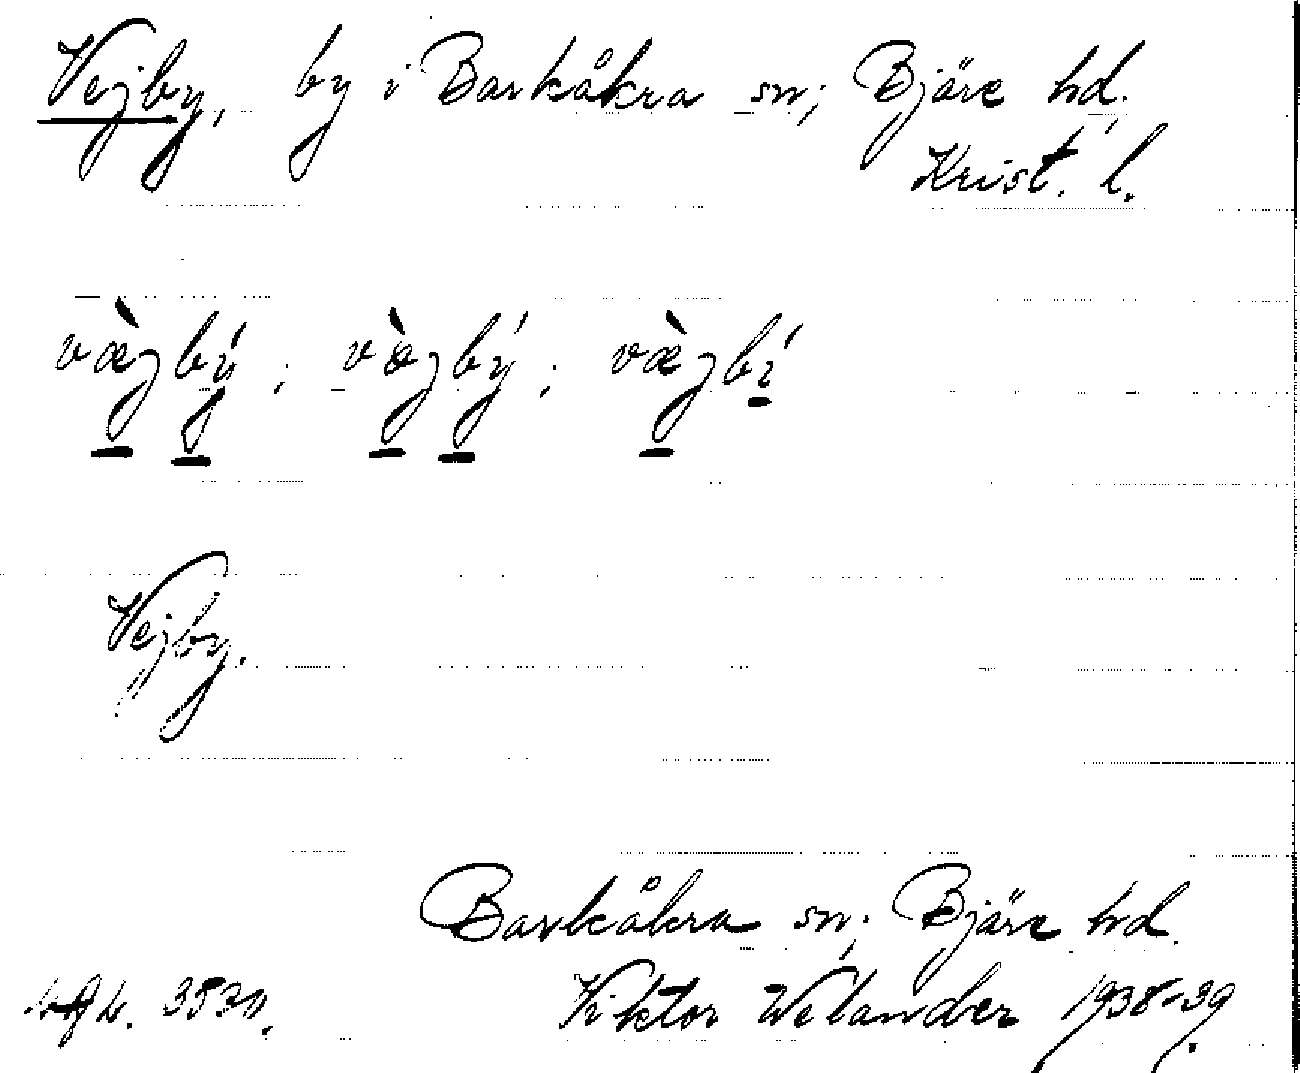 Vejby, by i Barkåkra sn; Bjäre hd.
Krist. l.
væ̀jbý; væ̀jbý; væ̀jbí
Vejby.
Barkåkra sn; Bjäre hd.
Viktor Welander 1938-39.